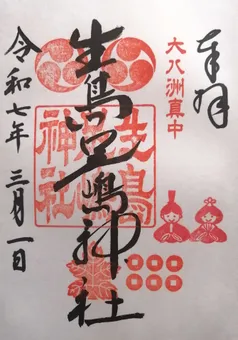 奉拝
大八洲真中
生島足島神社
生島足島神社
令和七年 三月一日